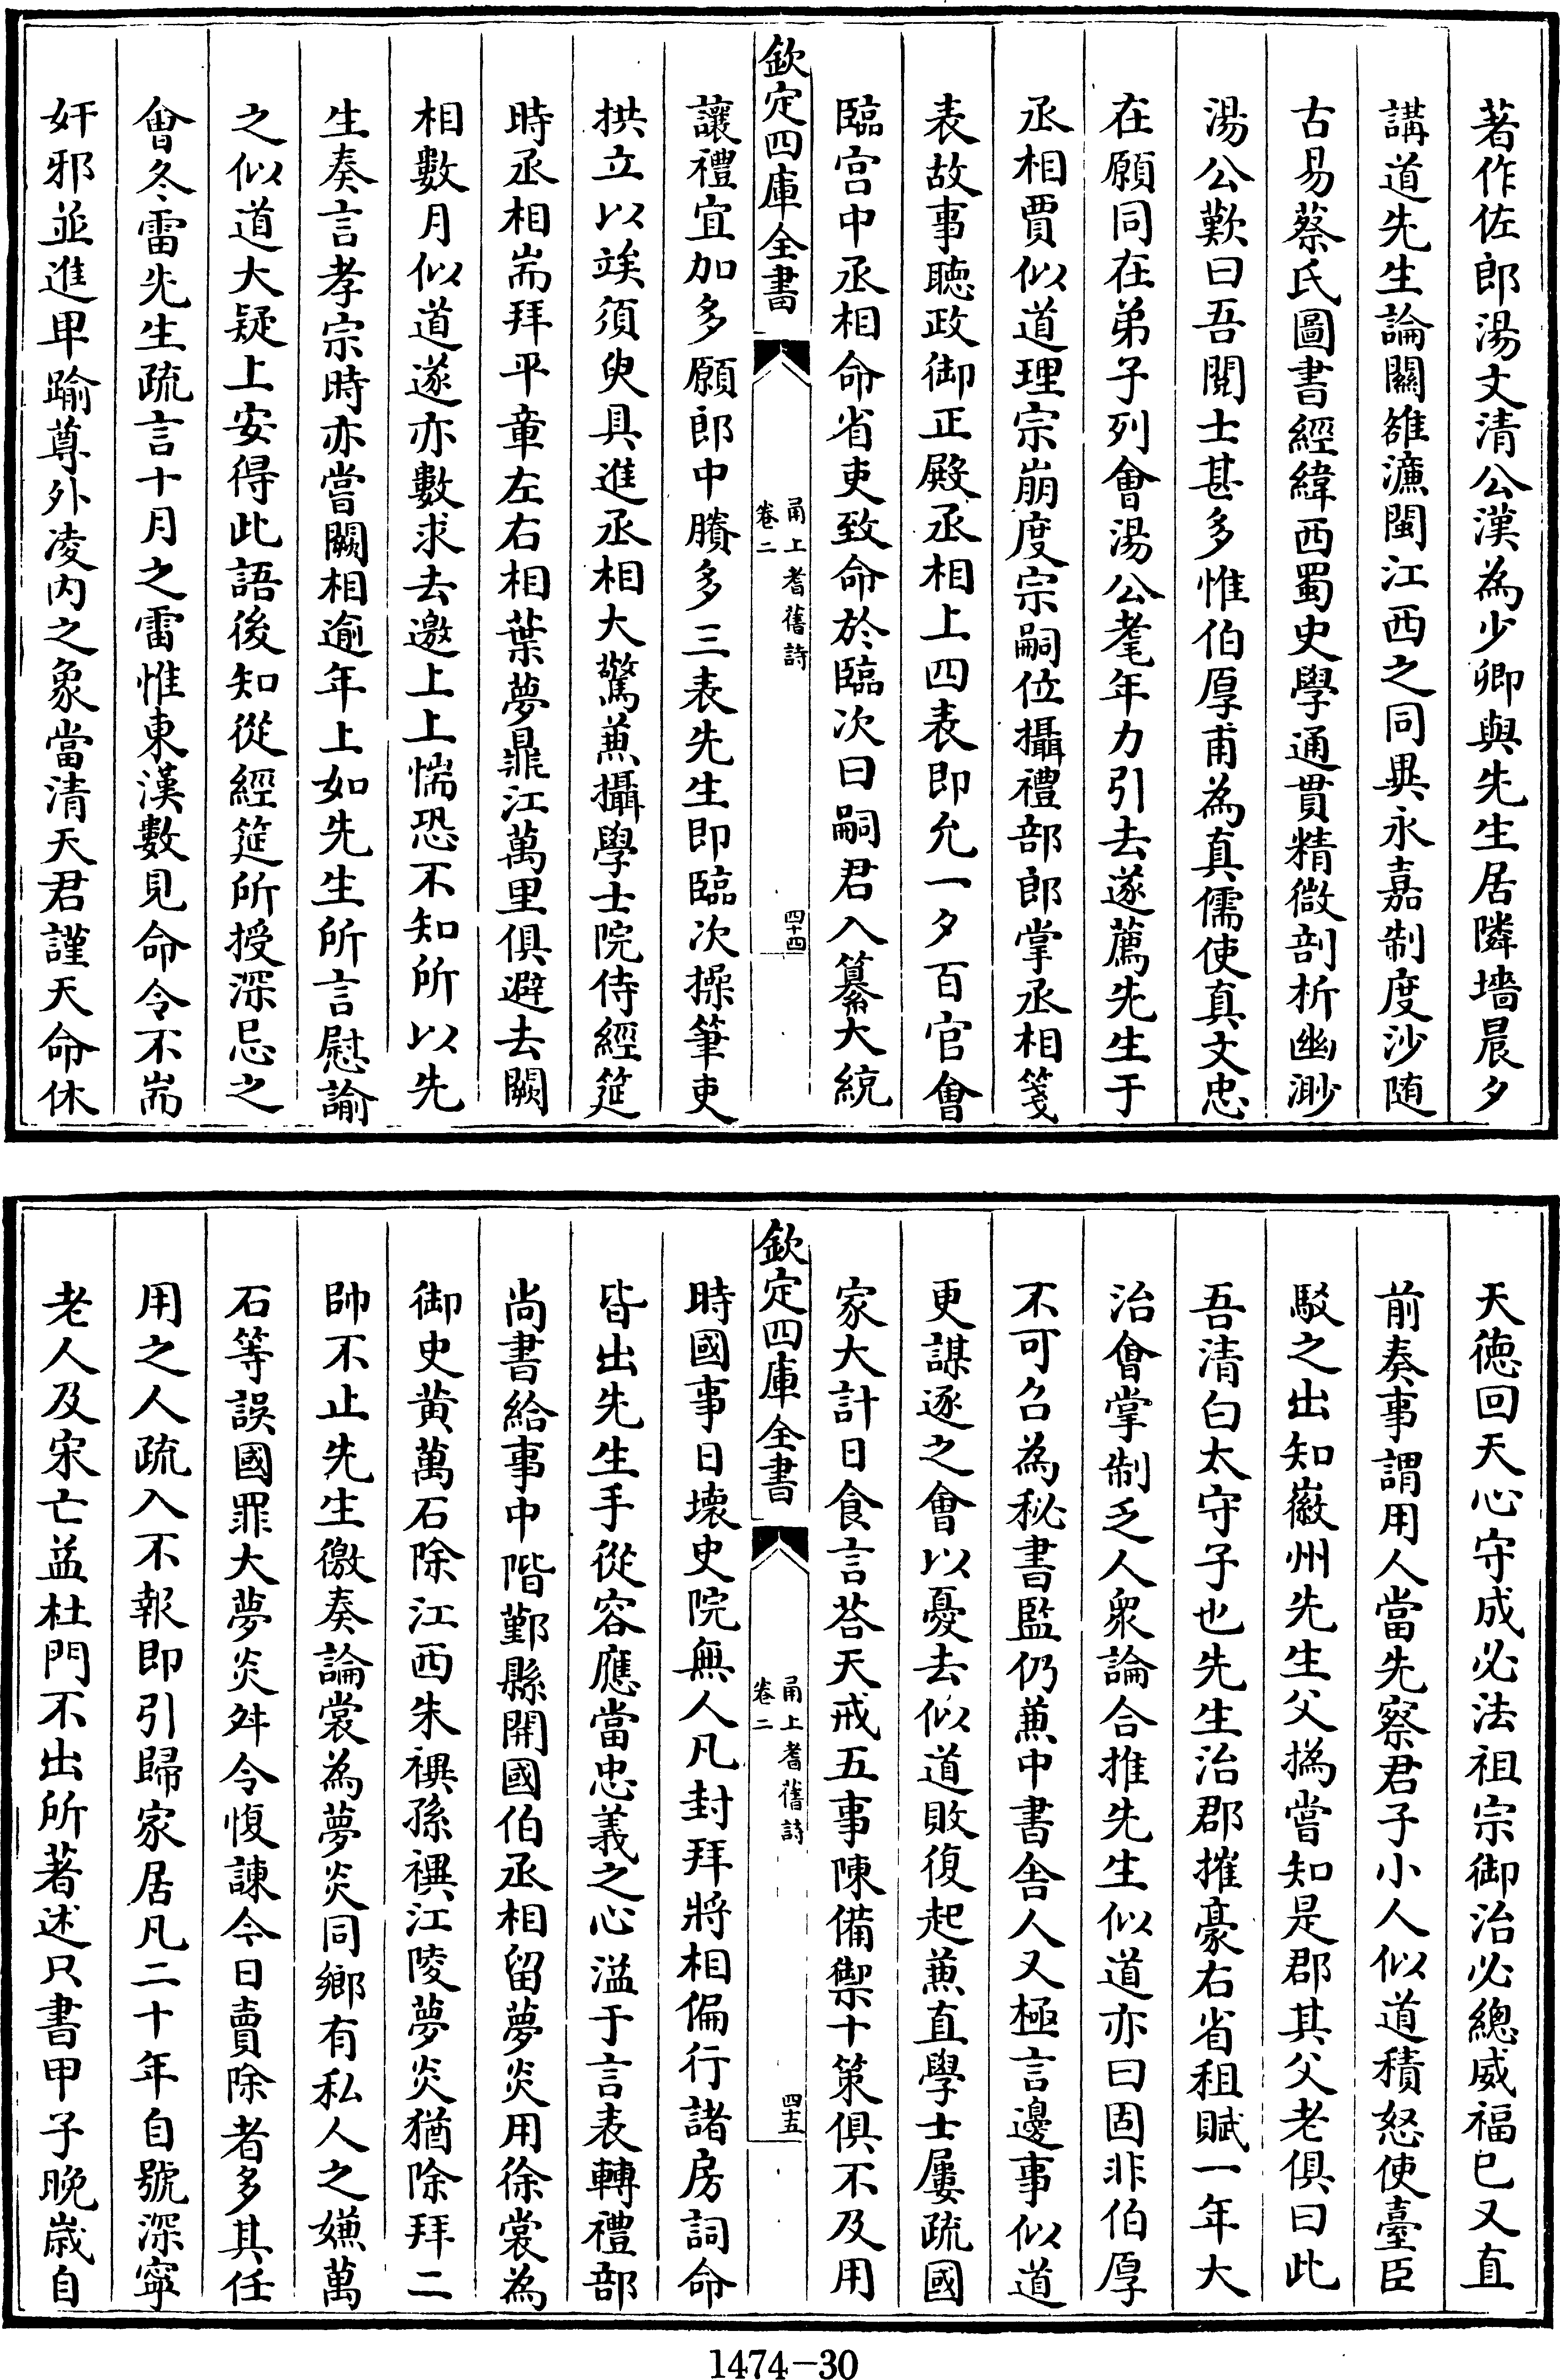 著作佐郎湯文清公漢為少卿與先生居隣墻晨夕
講道先生論關雒濂閩江西之同異永嘉制度沙随
古易蔡氏圖書經緯西蜀史學通貫精微剖析幽渺
湯公歎曰吾閱士甚多惟伯厚甫為真儒使真文忠
在願同在弟子列會湯公耄年力引去遂薦先生于
丞相賈似道理宗崩度宗嗣位攝禮部郎掌丞相箋
表故事聽政御正殿丞相上四表即允一夕百官會
臨宫中丞相命省吏致命於臨次曰嗣君入纂大統
欽定四庫全書
甬上耆舊詩
卷二
四十四
讓禮宜加多願郎中賸多三表先生即臨次操筆吏
拱立以竢須臾具進丞相大驚兼攝學士院侍經筵
時丞相耑拜平章左右相葉夢鼎江萬里俱避去闕
相數月似道遂亦數求去邀上上惴恐不知所以先
生奏言孝宗時亦嘗闕相逾年上如先生所言慰諭
之似道大疑上安得此語後知從經筵所授深忌之
會冬雷先生疏言十月之雷惟東漢數見命令不耑
奸邪並進卑踰尊外凌内之象當清天君謹天命休
天徳回天心守成必法祖宗御治必總威福已又直
前奏事謂用人當先察君子小人似道積怒使臺臣
駁之出知徽州先生父撝嘗知是郡其父老俱曰此
吾清白太守子也先生治郡摧豪右省租賦一年大
治會掌制乏人衆論合推先生似道亦曰固非伯厚
不可召為秘書監仍兼中書舍人又極言邊事似道
更謀逐之會以憂去似道敗復起兼直學士屢疏國
家大計日食言荅天戒五事陳備禦十策俱不及用
欽定四庫全書
甬上耆舊詩
卷二
四十五
時國事日壊史院無人凡封拜將相偏行諸房詞命
皆出先生手從容應當忠義之心溢于言表轉禮部
尚書給事中階鄞縣開國伯丞相留夢炎用徐裳為
御史黄萬石除江西朱禩孫禩江陵夢炎猶除拜二
帥不止先生徼奏論裳為夢炎同鄉有私人之嫌萬
石等誤國罪大夢炎舛令愎諫今日賣除者多其任
用之人疏入不報即引歸家居凡二十年自號深寧
老人及宋亡益杜門不出所著述只書甲子晚歳自
1474-30